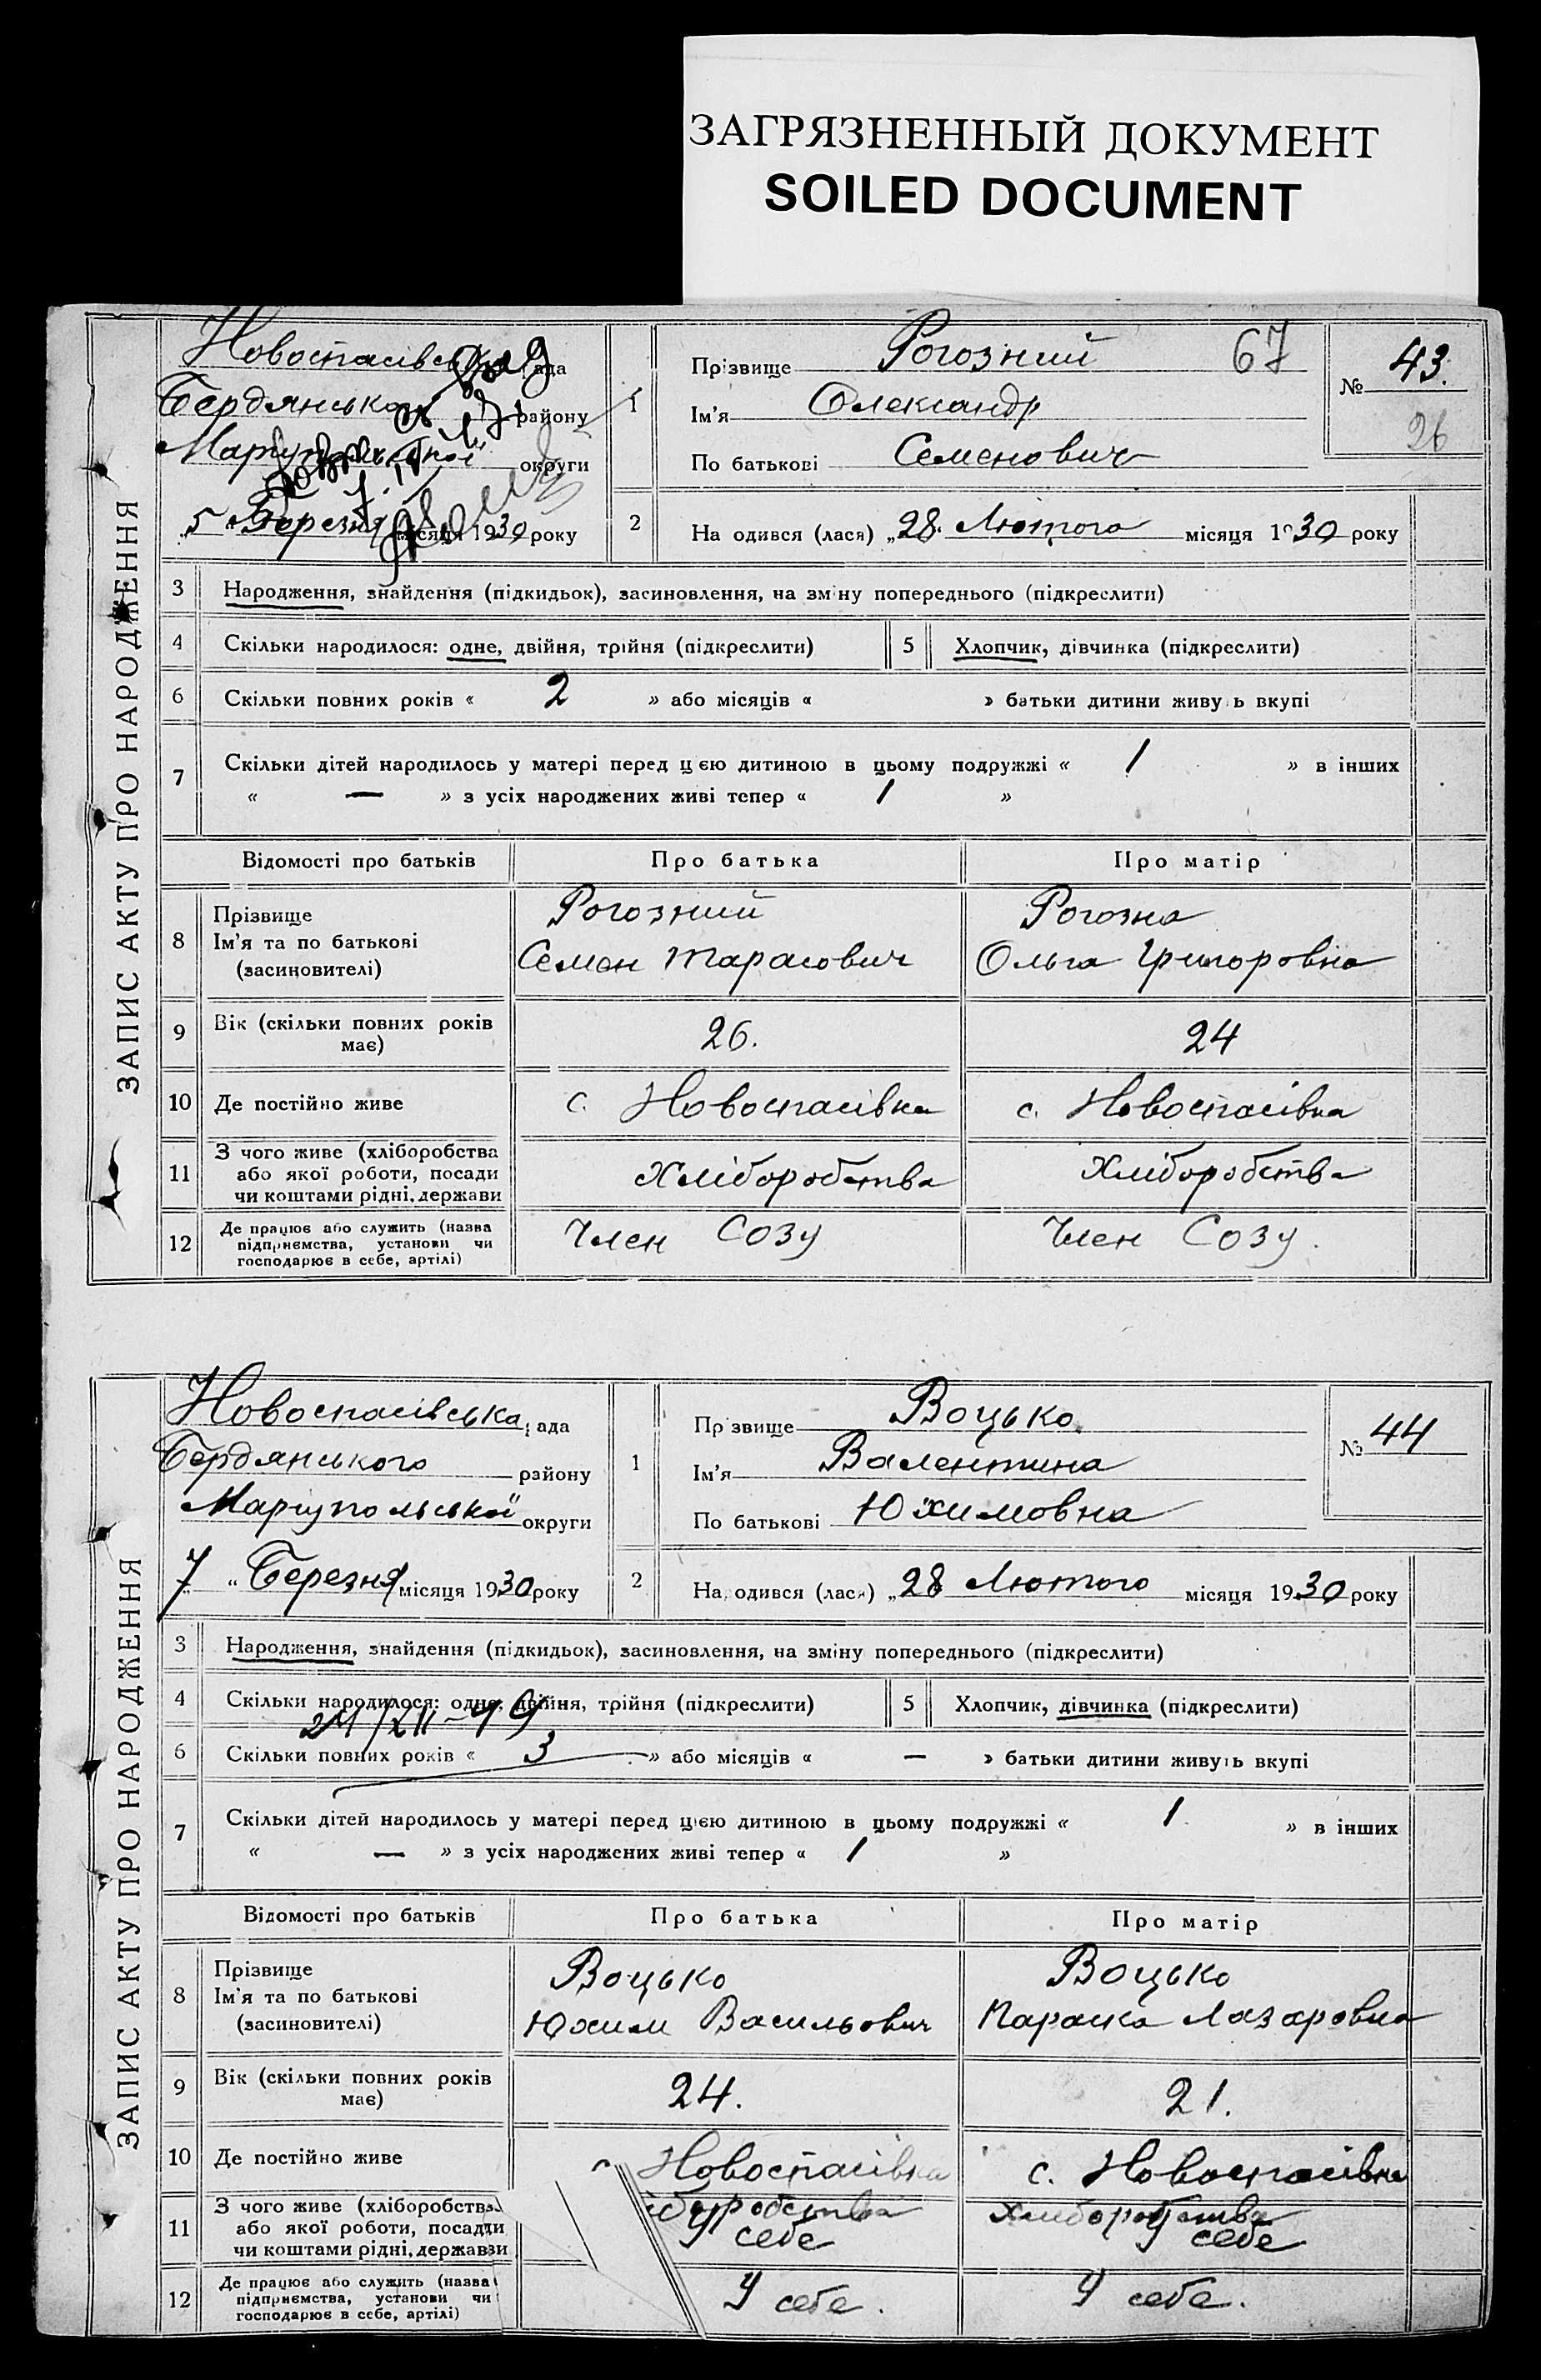 ЗАГРЯЗНЕННЫЙ ДОКУМЕНТ
SOILED DOCUMENT
ЗАПИС АКТУ ПРО НАРОДЖЕННЯ
Новоспасівська рада
Бердянського району
Маріупольської округи
5 Березня місяця 1930 року
1
Прізвище Рогозний 67
Ім'я Олександр
По батькові Семенович
№ 43.
26
2 На одився (лася) „28. Лютого місяця 1930 року
3 Народження, знайдення (підкидьок), засиновлення, на зміну попереднього (підкреслити)
4 Скільки народилося: одне, двійня, трійня (підкреслити) 5 Хлопчик, дівчинка (підкреслити)
6 Скільки повних років « 2 » або місяців « » батьки дитини живу ь вкупі
7 Скільки дітей народилось у матері перед цією дитиною в цьому подружжі « 1 » в інших
« — » з усіх народжених живі тепер « 1 »
Відомості про батьків Про батька Про матір
8 Прізвище Рогозний Рогозна
Ім'я та по батькові (засиновителі) Семен Тарасович Ольга Григоровна
9 Вік (скільки повних років має) 26. 24
10 Де постійно живе с. Новоспасівка с. Новоспасівка
11 З чого живе (хліборобства або якої роботи, посади чи коштами рідні, держави Хліборобства Хліборобства
12 Де працює або служить (назва підприємства, установи чи господарює в себе, артілі) Член Созу Член Созу.
ЗАПИС АКТУ ПРО НАРОДЖЕННЯ
Новоспасівська рада
Бердянського району
Маріупольської округи
7 „ Березня місяця 1930 року
1
Пр звище Воцько
Ім'я Валентина
По батькові Юхимовна
№ 44
2 На одився (лася) „28 Лютого місяця 1930 року
3 Народження, знайдення (підкидьок), засиновлення, на зміну попереднього (підкреслити)
4 Скільки народилося: одне, двійня, трійня (підкреслити) 5 Хлопчик, дівчинка (підкреслити)
6 Скільки повних років « 3 » або місяців « — » батьки дитини живуть вкупі
7 Скільки дітей народилось у матері перед цією дитиною в цьому подружжі « 1 » в інших
« — » з усіх народжених живі тепер « 1 »
Відомості про батьків Про батька Про матір
8 Прізвище Воцько Воцько
Ім'я та по батькові (засиновителі) Юхим Васильович Параска Лазаровна
9 Вік (скільки повних років має) 24. 21.
10 Де постійно живе Новоспасівка с. Новоспасівка
11 З чого живе (хліборобства або якої роботи, посади чи коштами рідні, держави іборобства У себе Хліборобства У себе
12 Де працює або служить (назва підприємства, установи чи господарює в себе, артілі) У себе. У себе.